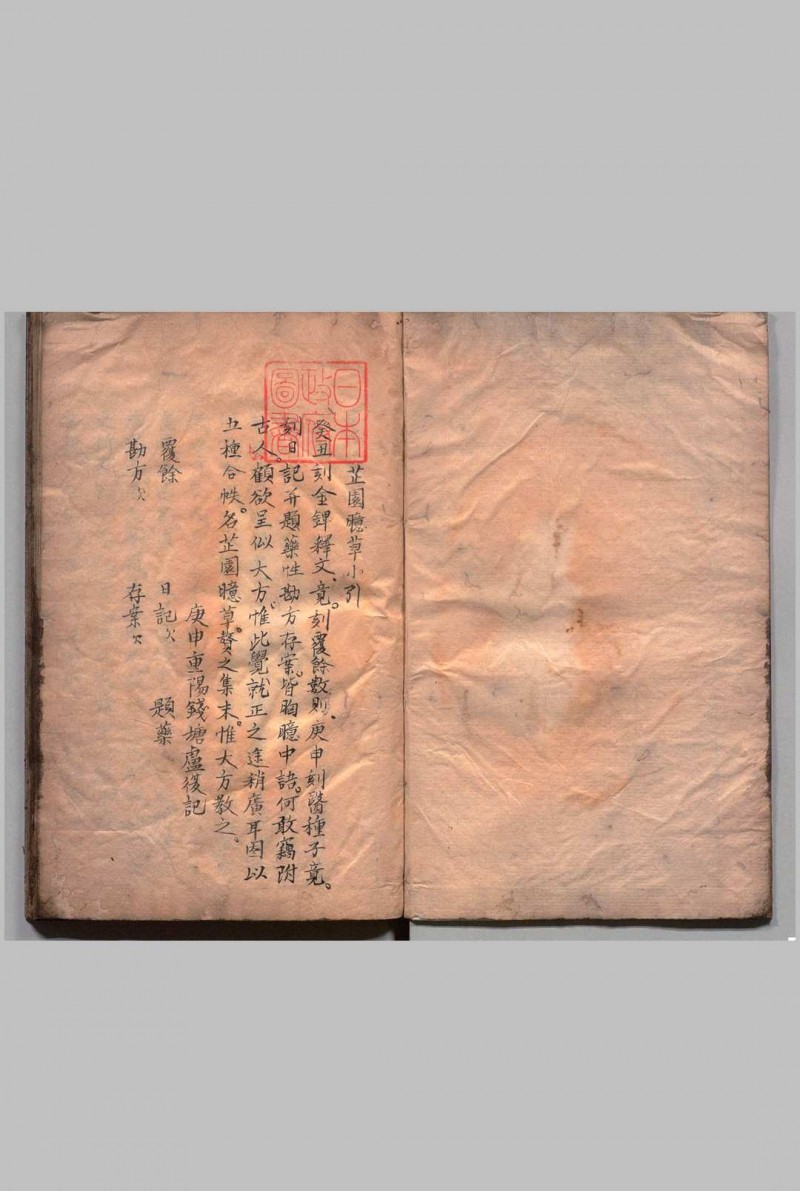 芷園臆草小引
癸丑刻金錍釋文、竟。刻覆餘數則、庚申刻醫種子竟。
刻日記并題藥性勘方存案。皆胸臆中語。何敢竊附
古人。顧欲呈似大方。惟此覺就正之途稍廣耳因以
五種合帙。名芷園臆草。贅之集末。惟大方教之。
庚申重陽錢塘盧復記
覆餘 日記 題藥
勘方 存案
日本
政府
圖書